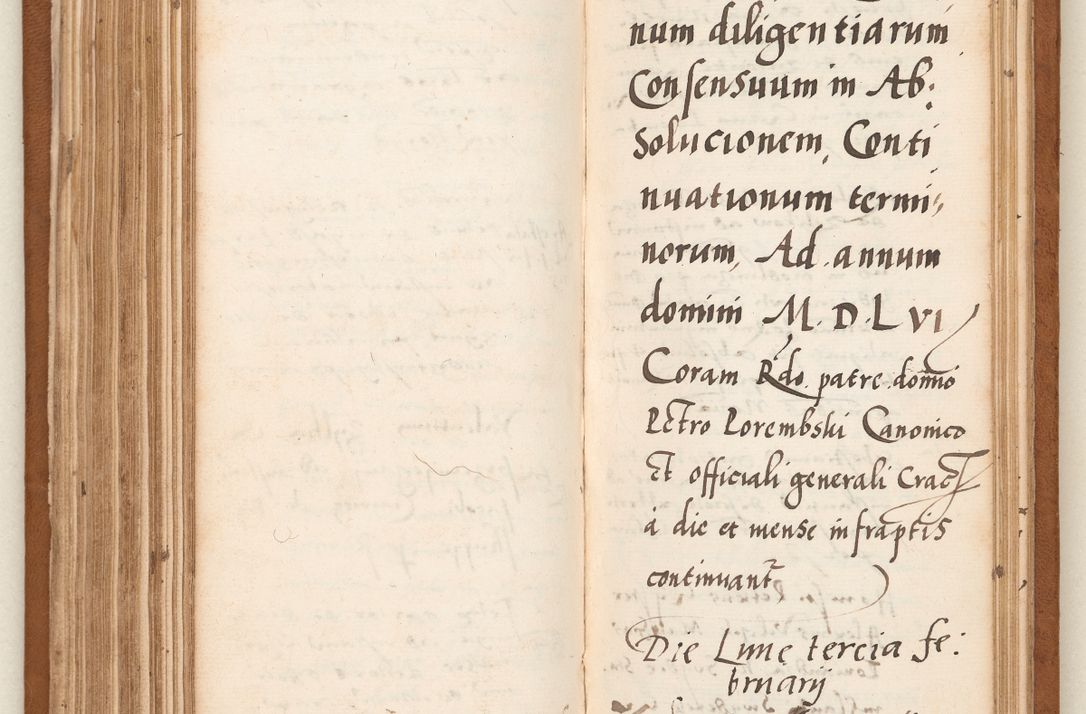 num diligentiarum
Consensuum in Ab:
Solucionem, Conti
nuationum termi,
norum, Ad annum
domini M.D.L VI
Coram Rdo patre domno
Petro Porembski Canonico
Et officiali generali Crac
a die et mense infraptis
continuant
Die Lune tercia fe:
bruarij